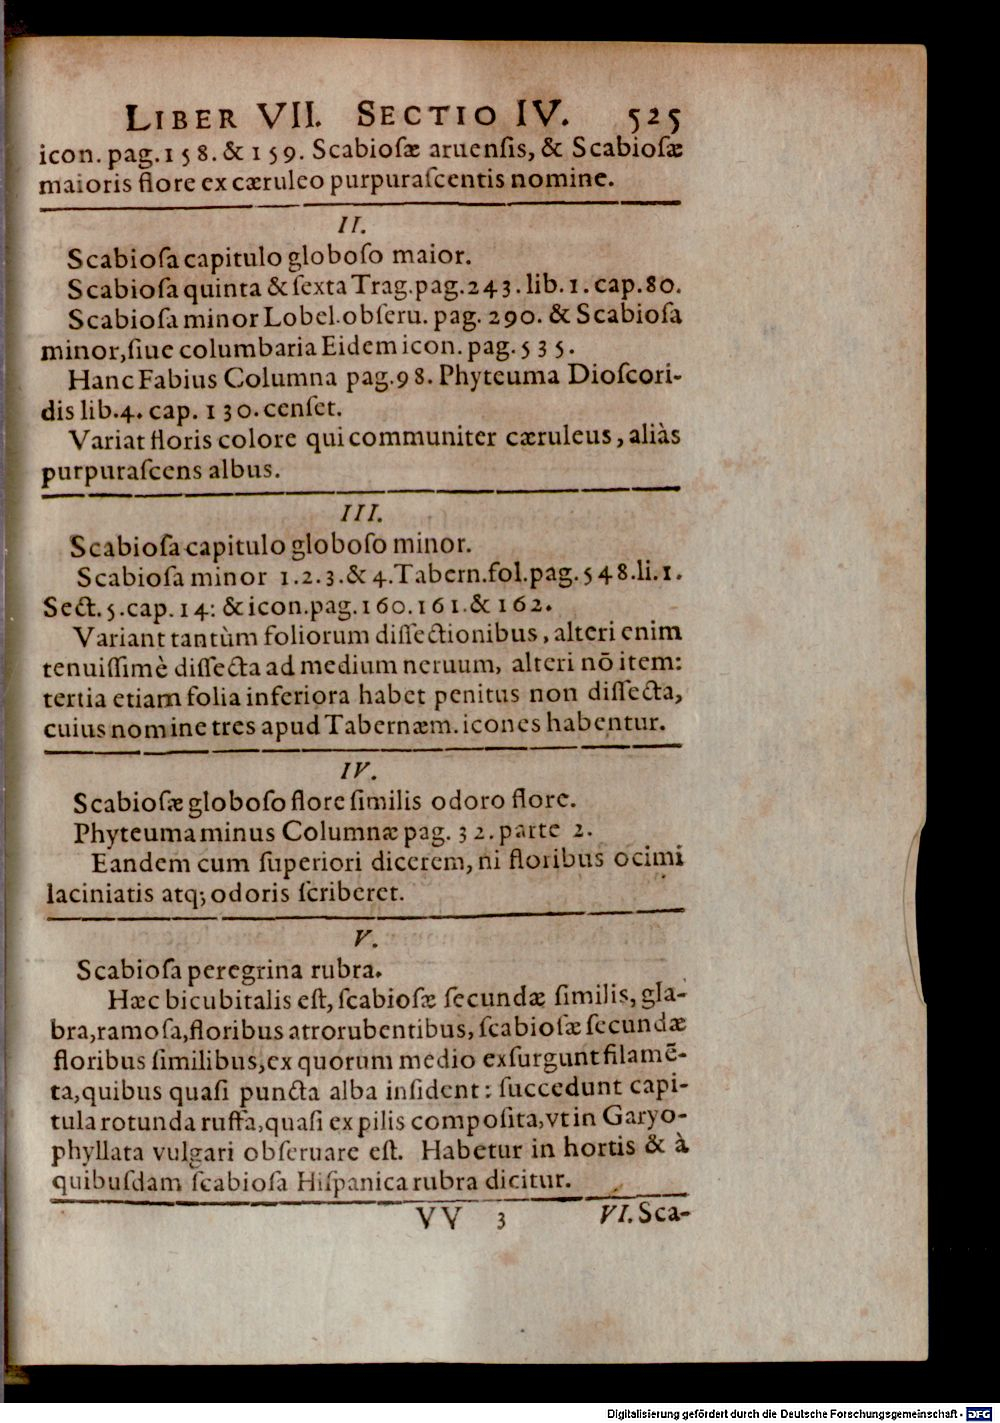 LIBER VII. SECTIO IV. 525
icon. pag. 158. & 159. Scabioſæ aruenſis, & Scabioſæ
maioris flore ex cæruleo purpuraſcentis nomine.
II.
Scabioſa capitulo globoſo maior.
Scabioſa quinta & ſexta Trag. pag. 243. lib. 1. cap. 80.
Scabioſa minor Lobel. obſeru. pag. 290. & Scabioſa
minor, ſiue columbaria Eidem icon. pag. 535.
Hanc Fabius Columna pag. 98. Phyteuma Dioſcori-
dis lib. 4. cap. 130. cenſet.
Variat floris colore qui communiter cæruleus, aliàs
purpuraſcens albus.
III.
Scabioſa capitulo globoſo minor.
Scabioſa minor 1. 2. 3. & 4. Tabern. fol. pag. 548. li. 1.
Sect. 5. cap. 14: & icon. pag. 160. 161. & 162.
Variant tantùm foliorum diſſectionibus, alteri enim
tenuiſſimè diſſecta ad medium neruum, alteri nō item:
tertia etiam folia inferiora habet penitus non diſſecta,
cuius nomine tres apud Tabernæm. icones habentur.
IV.
Scabioſæ globoſo flore ſimilis odoro flore.
Phyteuma minus Columnæ pag. 32. parte 2.
Eandem cum ſuperiori dicerem, ni floribus ocimi
laciniatis atq; odoris ſcriberet.
V.
Scabioſa peregrina rubra.
Hæc bicubitalis eſt, ſcabioſæ ſecundæ ſimilis, gla-
bra, ramoſa, floribus atrorubentibus, ſcabioſæ ſecundæ
floribus ſimilibus, ex quorum medio exſurgunt filamē-
ta, quibus quaſi puncta alba inſident: ſuccedunt capi-
tula rotunda ruffa, quaſi ex pilis compoſita, vt in Garyo-
phyllata vulgari obſeruare eſt. Habetur in hortis & à
quibuſdam ſcabioſa Hiſpanica rubra dicitur.
VV 3 VI. Sca-
Digitalisierung gefördert durch die Deutsche Forschungsgemeinschaft - DFG